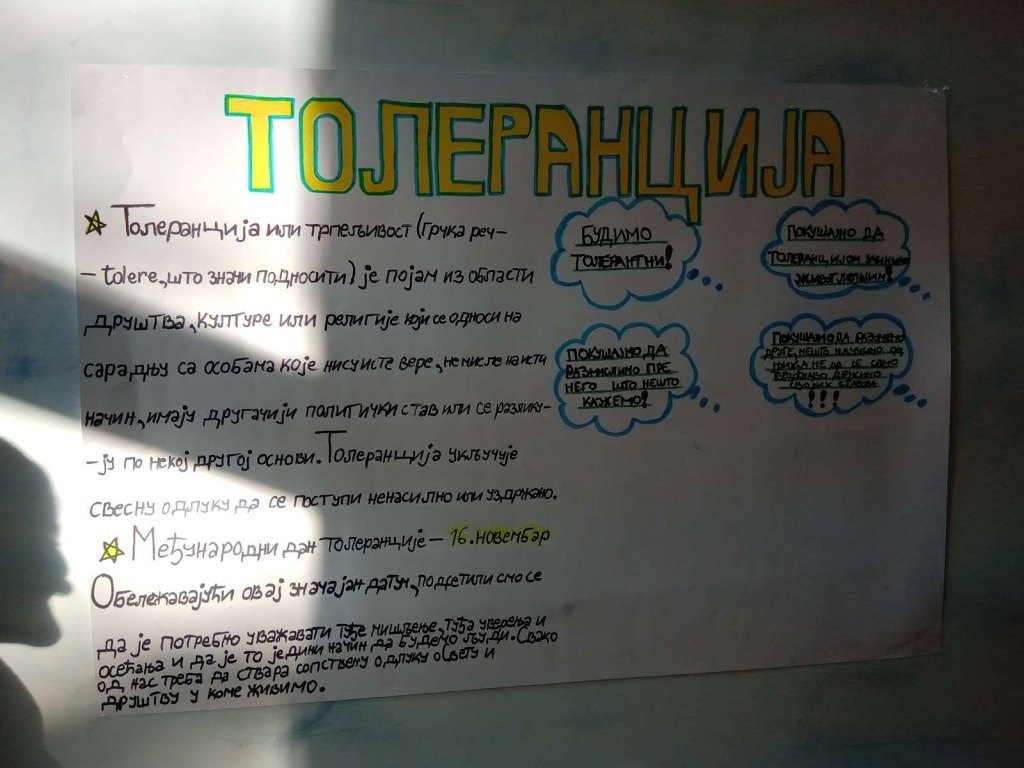 ТОЛЕРАНЦИЈА
Толеранција или трпељивост (грчка реч-
- tolere, што значи подносити) је појам из области
друштва, културе или религије који се односи на
сарадњу са особама које нису исте вере, не мисле на исти
начин, имају другачији политички став или се разлику-
-ју по некој другој основи. Толеранција укључује
свесну одлуку да се поступи ненасилно или уздржано.
Међународни дан толеранције - 16. новембар
Обележавајући овај значајан датум, подсетили смо се
да је потребно уважавати туђе мишљење, туђа уверења и
осећања и да је то једини начин да будемо људи. Свако
од нас треба да ствара сопствену одлуку о свету и
друштву у коме живимо.
БУДИМО
ТОЛЕРАНТНИ!
ПОКУШАЈМО ДА
ТОЛЕРАНЦИЈОМ УЧИНИМО
ЖИВОТ ЛЕПШИМ!
ПОКУШАЈМО ДА
РАЗМИСЛИМО ПРЕ
НЕГО ШТО НЕШТО
КАЖЕМО!
ПОКУШАЈМО ДА РАЗУМЕМО
ДРУГЕ, НЕШТО НАУЧИМО ОД
ЊИХ, А НЕ ДА СЕ САМО
ДРЖИМО
СВОЈИХ СТАВОВА
!!!